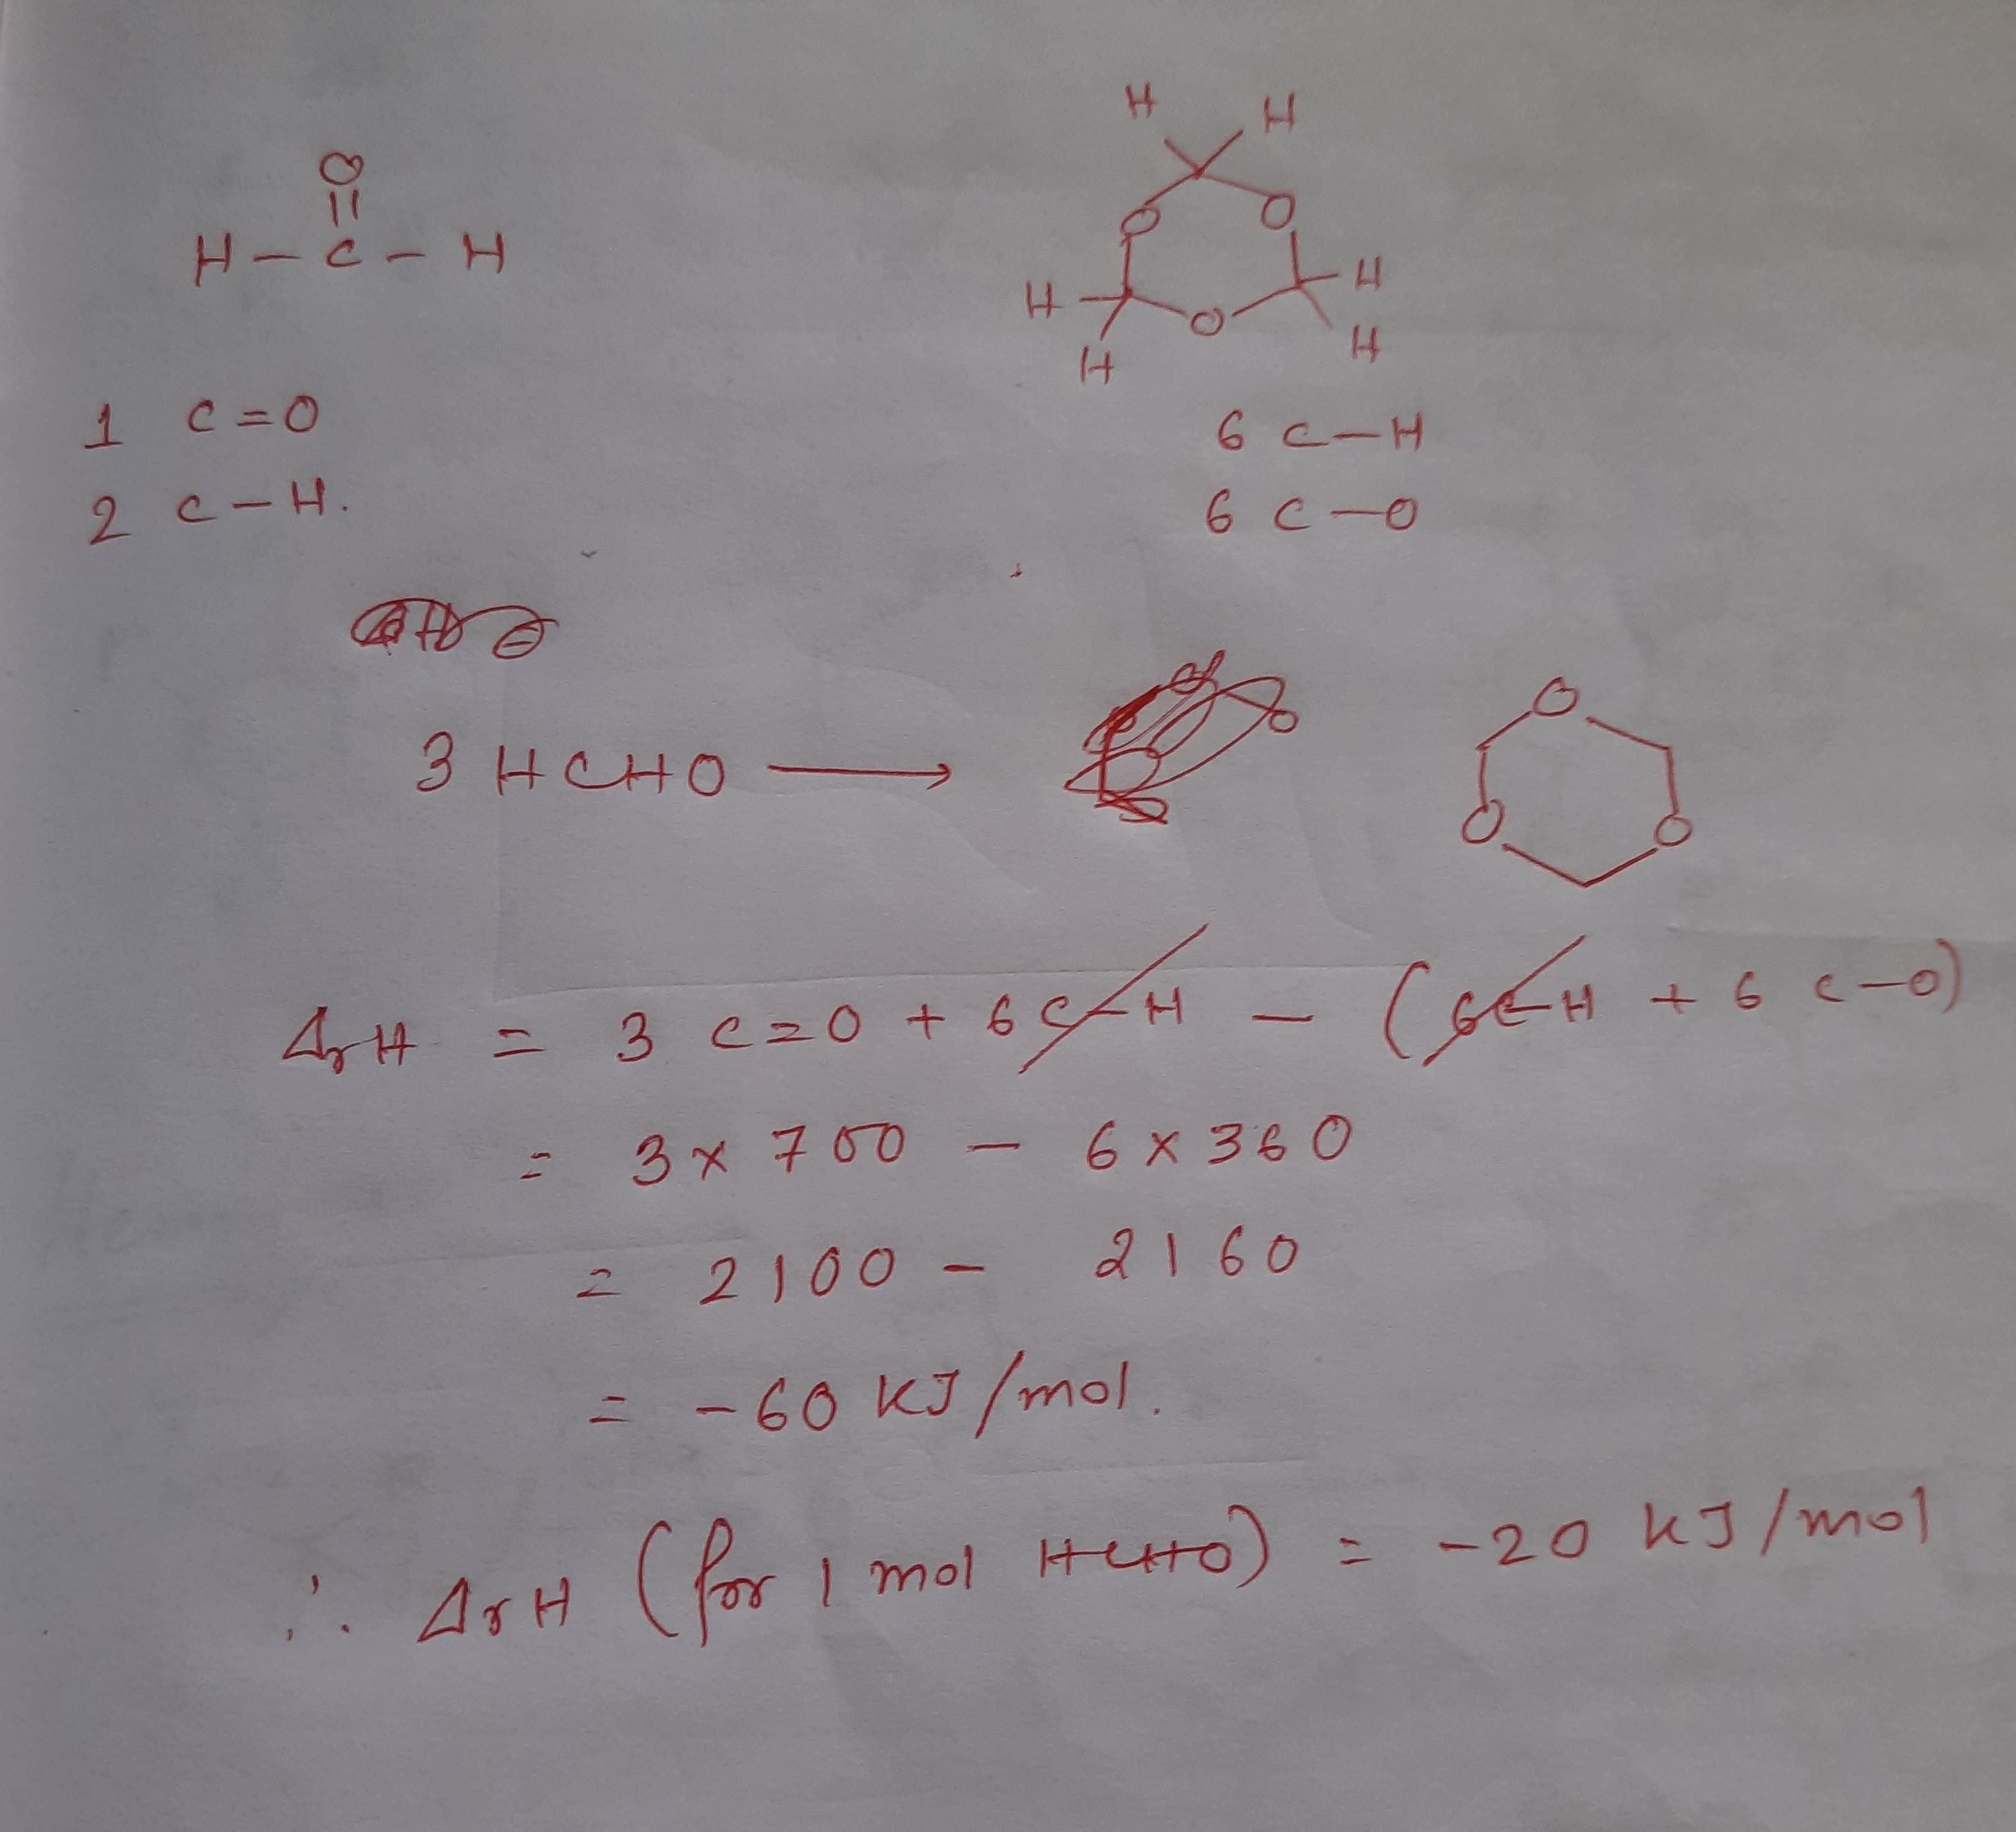 H H
O
||
H - C - H
O O
H H
O
H H
1 C=O
6 C-H
2 C-H.
6 C-O
O
3 HCHO ⟶
O O
ΔrH = 3 C=O + 6 C-H - (6C-H + 6 C-O)
= 3 x 700 - 6 x 360
= 2100 - 2160
= -60 KJ/mol.
∴ ΔrH (for 1 mol HCHO) = -20 KJ/mol